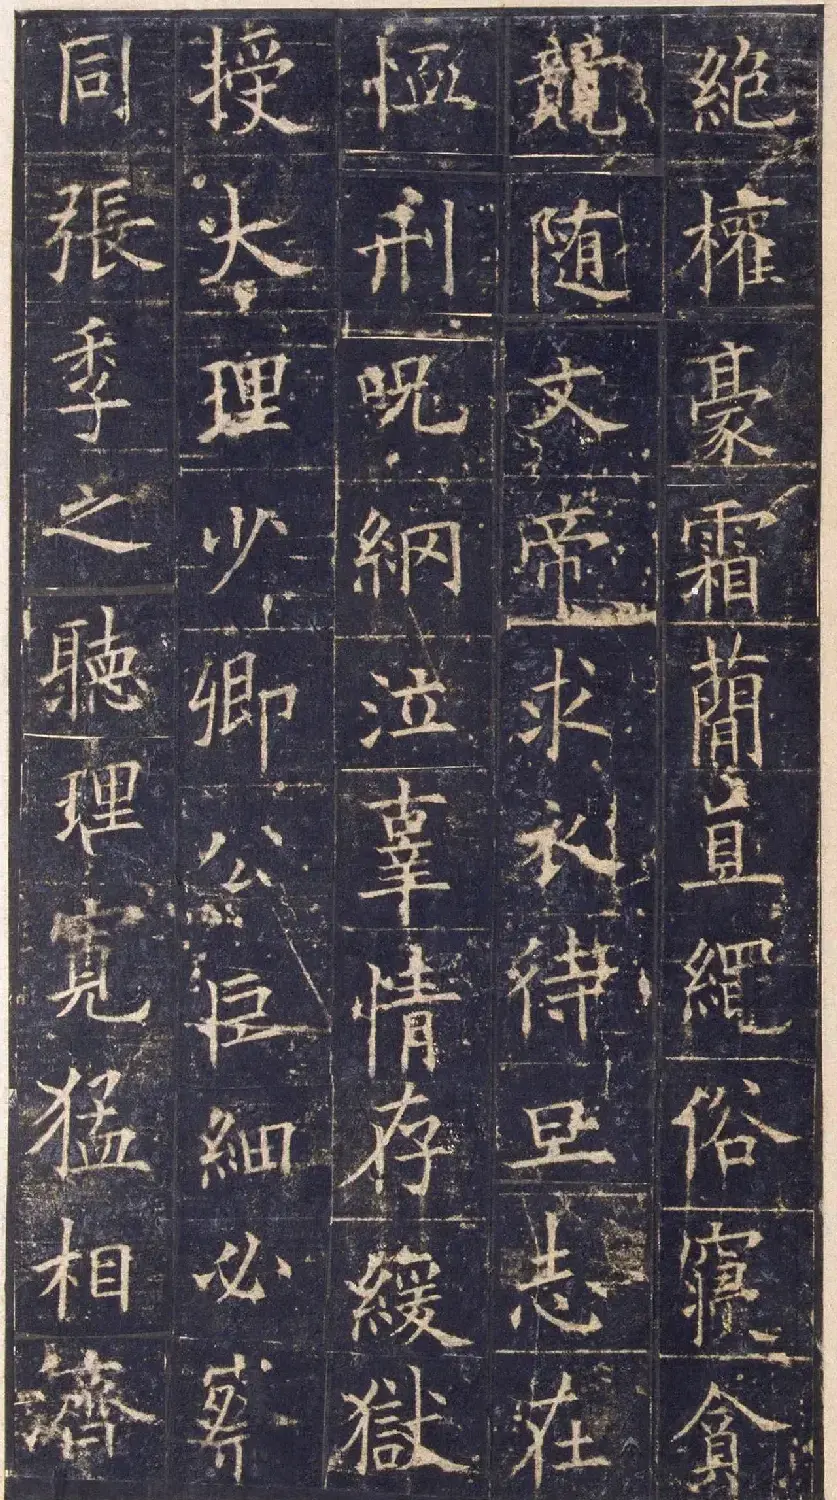 絶權豪霜蕳直繩俗寢貪
競随文帝求衣待旦志在
恤刑呪網泣辜情存緩獄
授大理少卿公巨細必察
同張季之聽理寬猛相濟